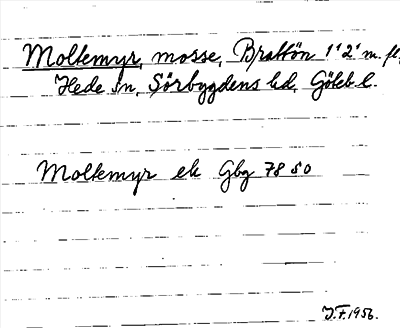 Moltemyr, mosse, Brattön 1'2' m. fl.,
Hede sn, Sörbygdens hd, Göteb l.
Moltemyr ek Gbg 78 SO
J.F. 1956.